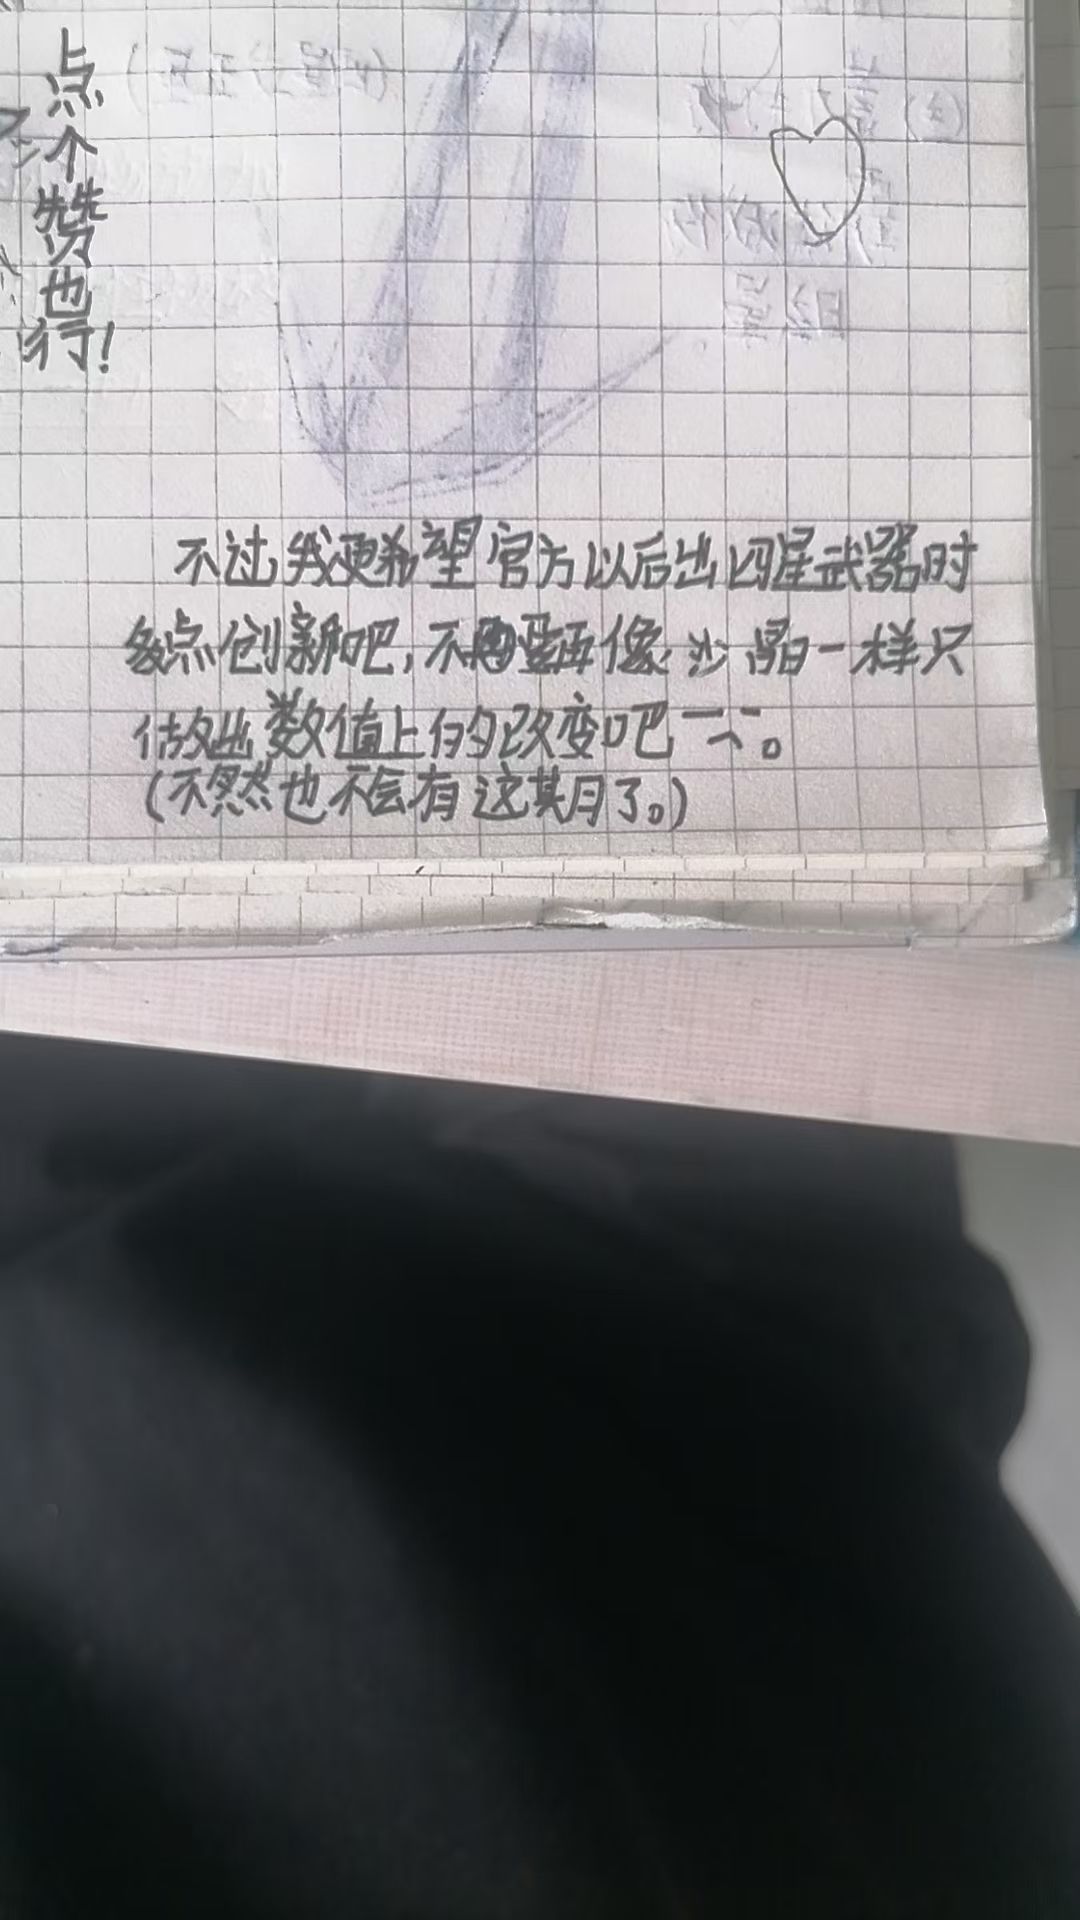 点个赞也行!
不过我更希望官方以后出四星武器时
多点创新吧,不要再像沙晶一样只
做出数值上的改变吧
(不然也不会有这期了。)